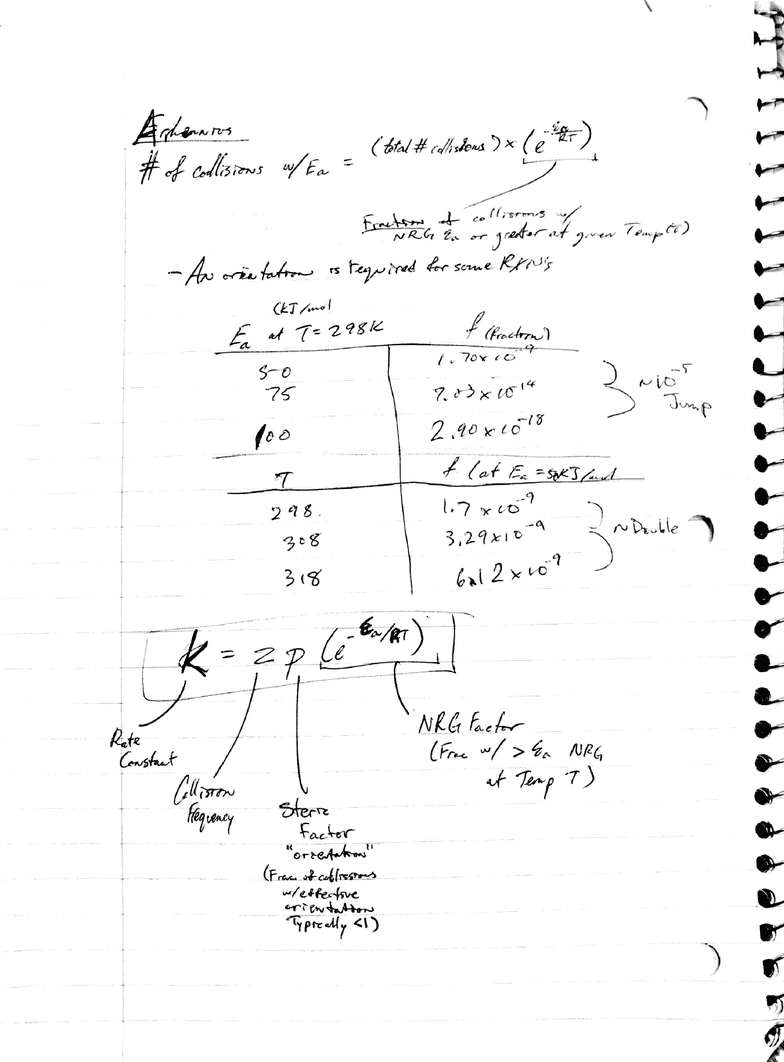 Arrhenius
# of collisions w/ Ea = (total # collisions) × (e^-Ea/RT)
Fraction of collisions w/
NRG Ea or greater at given Temp(T)
- An orietation is required for some RXN's
(KJ/mol
Ea at T=298K f (Fraction)
50 1.70×10^-9
75 7.03×10^-14
100 2.90×10^-18
~10^-5
Jump
T f (at Ea = 50KJ/mol
298 1.7×10^-9
308 3.29×10^-9
318 6.12×10^-9
~Double
k = z p (e^-Ea/RT)
Rate
Constant
Collision
Frequency
Steric
Factor
"orientation"
(Frac of collisions
w/effective
orientation
Typically <1)
NRG Factor
(Frac w/ > Ea NRG
at Temp T)